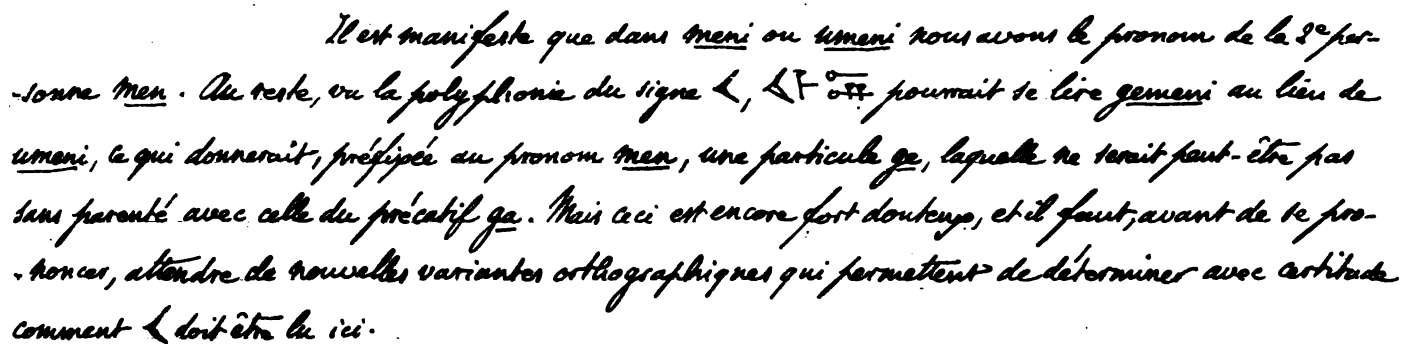 Il est manifeste que dans meni ou umeni nous avons le pronom de la 2e per-
-sonne men. Au reste, vu la polyphonie du signe 𒌋, pourrait se lire gemeni au lieu de
umeni, ce qui donnerait, préfixée au pronom men, une particule ge, laquelle ne serait peut-être pas
sans parenté avec celle du précatif ga. Mais ceci est encore fort douteux, et il faut, avant de se pro-
-noncer, attendre de nouvelles variantes orthographiques qui permettent de déterminer avec certitude
comment 𒌋 doit être lu ici.